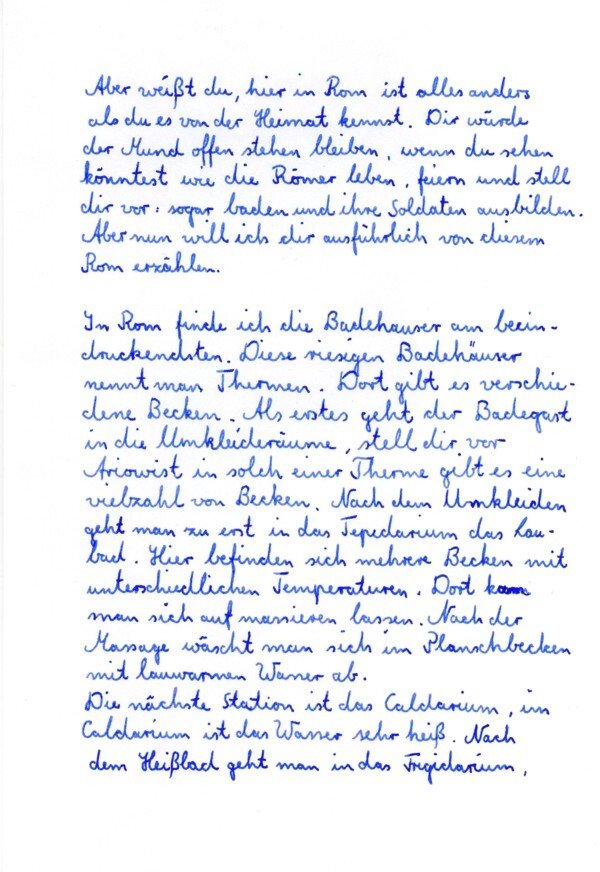 Aber weißt du, hier in Rom ist alles anders
als du es von der Heimat kennst. Dir würde
der Mund offen stehen bleiben, wenn du sehen
könntest wie die Römer leben, feiern und stell
dir vor: sogar baden und ihre Soldaten ausbilden.
Aber nun will ich dir ausführlich von diesem
Rom erzählen.
In Rom finde ich die Badehauser am beein-
druckendsten. Diese riesigen Badehäuser
nennt man Thermen. Dort gibt es verschie-
dene Becken. Als erstes geht der Badegast
in die Umkleideräume, stell dir vor
Ariowist in solch einer Therme gibt es eine
vielzahl von Becken. Nach dem Umkleiden
geht man zu erst in das Tepedarium das Lau-
bad. Hier befinden sich mehrere Becken mit
unterschiedlichen Temperaturen. Dort kann
man sich auf massieren lassen. Nach der
Massage wäscht man sich im Planschbecken
mit lauwarmen Wasser ab.
Die nächste Station ist das Caldarium, im
Caldarium ist das Wasser sehr heiß. Nach
dem Heißbad geht man in das Frigidarium,